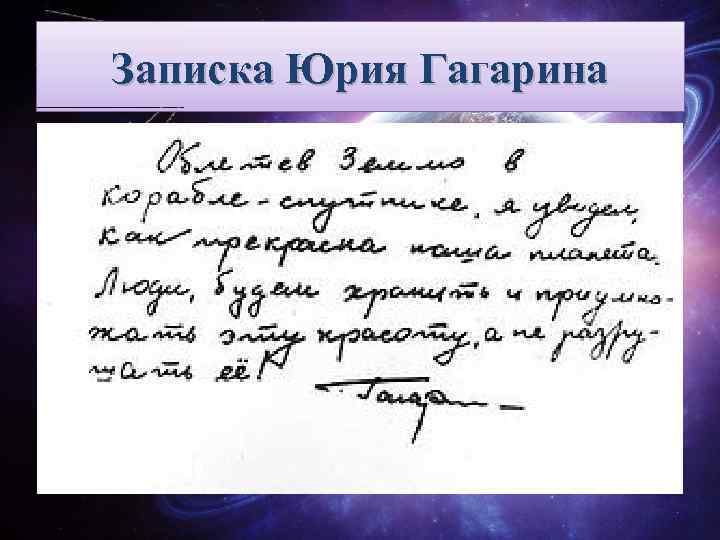 Записка Юрия Гагарина
Облетев Землю в
корабле-спутнике, я увидел,
как прекрасна наша планета.
Люди, будем хранить и приумно-
жать эту красоту, а не разру-
шать её!
Гагарин